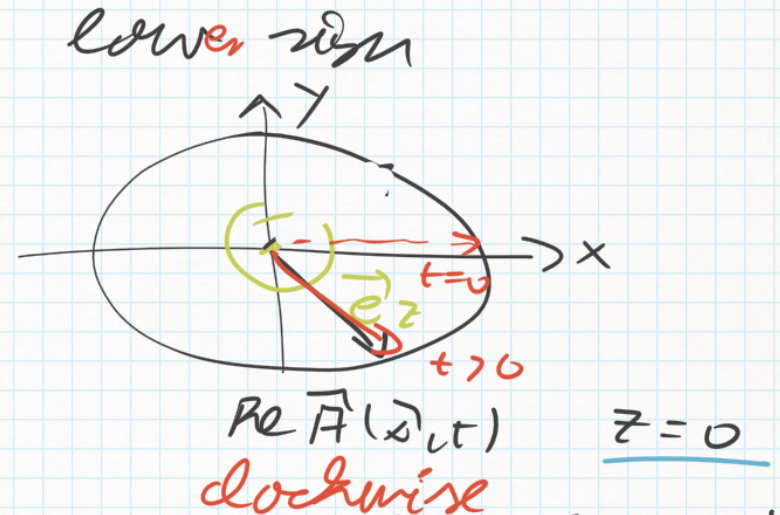 lower sign
y
x
t=0
e⃗z
t>0
Re A⃗(x⃗,t)
z=0
clockwise